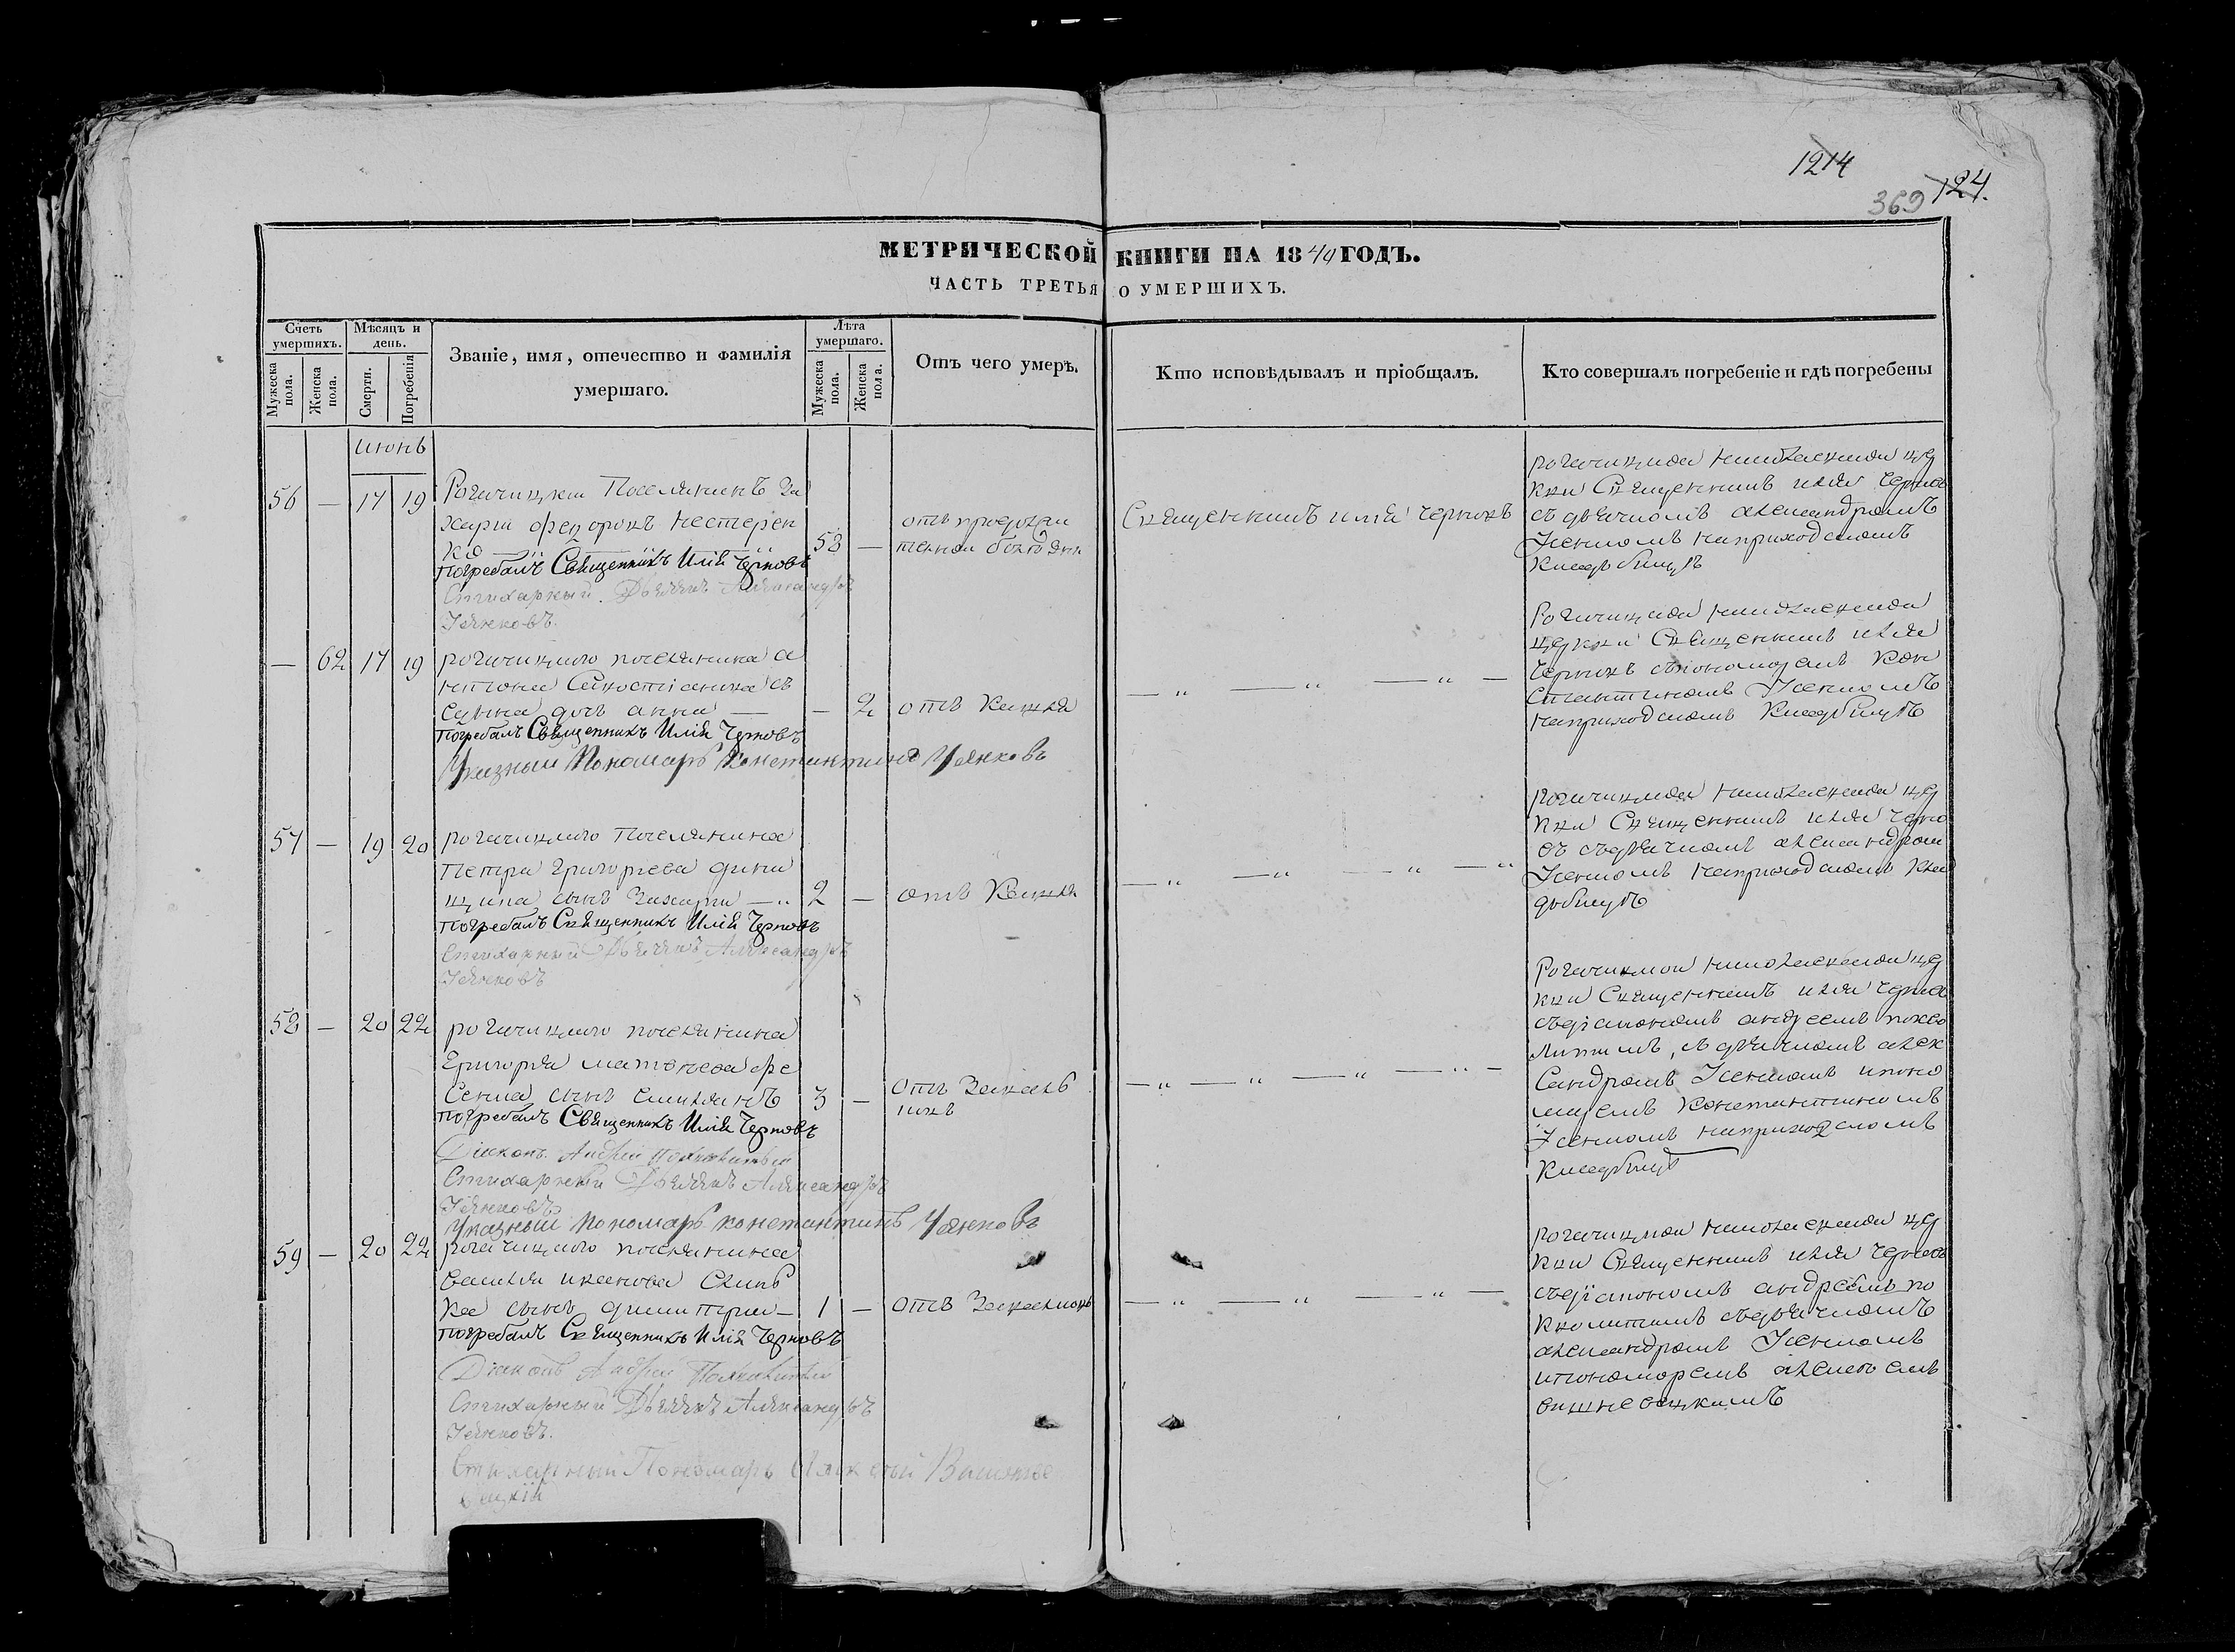 1214
369 124.
МЕТРИЧЕСКОЙ КНИГИ НА 1840 ГОДЪ.
ЧАСТЬ ТРЕТЬЯ О УМЕРШИХЪ.
Счетъ умершихъ.
Мужеска пола.
Женска пола.
Мѣсяцъ и день.
Смерти.
Погребенія
Званіе, имя, отечество и фамилія
умершаго.
Лѣта умершаго.
Мужеска пола.
Женска пола.
Отъ чего умеръ.
Кто исповѣдывалъ и пріобщалъ.
Кто совершалъ погребеніе и гдѣ погребены
июнь
56 — 17 19
Рогачицкій Поселянинъ За
харій Федоровъ Нестерен
ко 58 —
погребалъ Священникъ Илія Черновъ
Стихарный Дьячекъ Александръ
Усенковъ.
отъ продолжи
тельной болѣзни
Священникъ илія Черновъ
Рогачицкой николаевской це
кви Священникъ илія Чернов
съ дьячкомъ александромъ
Усенкомъ на приходскомъ
Кладбищѣ
— 62 17 19
рогачицкаго поселянина а
нтона Севостіанова
дочь анна — — 2
погребалъ Священникъ Илія Черновъ
Указный Пономарь Константинъ Усенковъ
отъ Кашля
— „ — „ — „ —
Рогачицкой николаевской
церкви Священникъ илія
Черновъ съ пономаремъ Кон
стантиномъ Усенкомъ
на приходскомъ Кладбищѣ
57 — 19 20
рогачицкаго Поселянина
Петра Григорьева
сынъ Захарій — „ 2 —
погребалъ Священникъ Илія Черновъ
Стихарный Дьячекъ Александръ
Усенковъ
отъ Кашля
— „ — „ — „ — „
рогачицкой николаевской це
кви Священникъ илія Черно
въ съ дьячкомъ александром
Усенкомъ на приходскомъ Кла
дбищѣ
58 — 20 22
рогачицкаго поселянина
Григорія матвѣева Фе
сенка сынъ Емиліанъ 3 —
погребалъ Священникъ Илія Черновъ
Діаконъ Андрей
Стихарный Дьячекъ Александръ
Усенковъ
Указный Пономарь Константинъ Усенковъ
— „ — „ — „ — „ —
Рогачицкой николаевской це
кви Священникъ илія Чернов
съ діакономъ андреемъ
съ дьячкомъ алек
сандромъ Усенкомъ и поно
маремъ Константиномъ
Усенкомъ на приходскомъ
Кладбищѣ
59 — 20 22
рогачицкаго поселянина
василія иванова
сынъ димитрій — 1 —
погребалъ Священникъ Илія Черновъ
Діаконъ Андрей
Стихарный Дьячекъ Александръ
Усенковъ.
Стихарный Пономарь Алексѣй Вишнев
ецкій
— „ — „ — „ —
рогачицкой николаевской це
кви Священникъ илія Чернов
съ діакономъ андреемъ
съ дьячкомъ
александромъ Усенкомъ
и пономаремъ алексѣемъ
вишневецкимъ